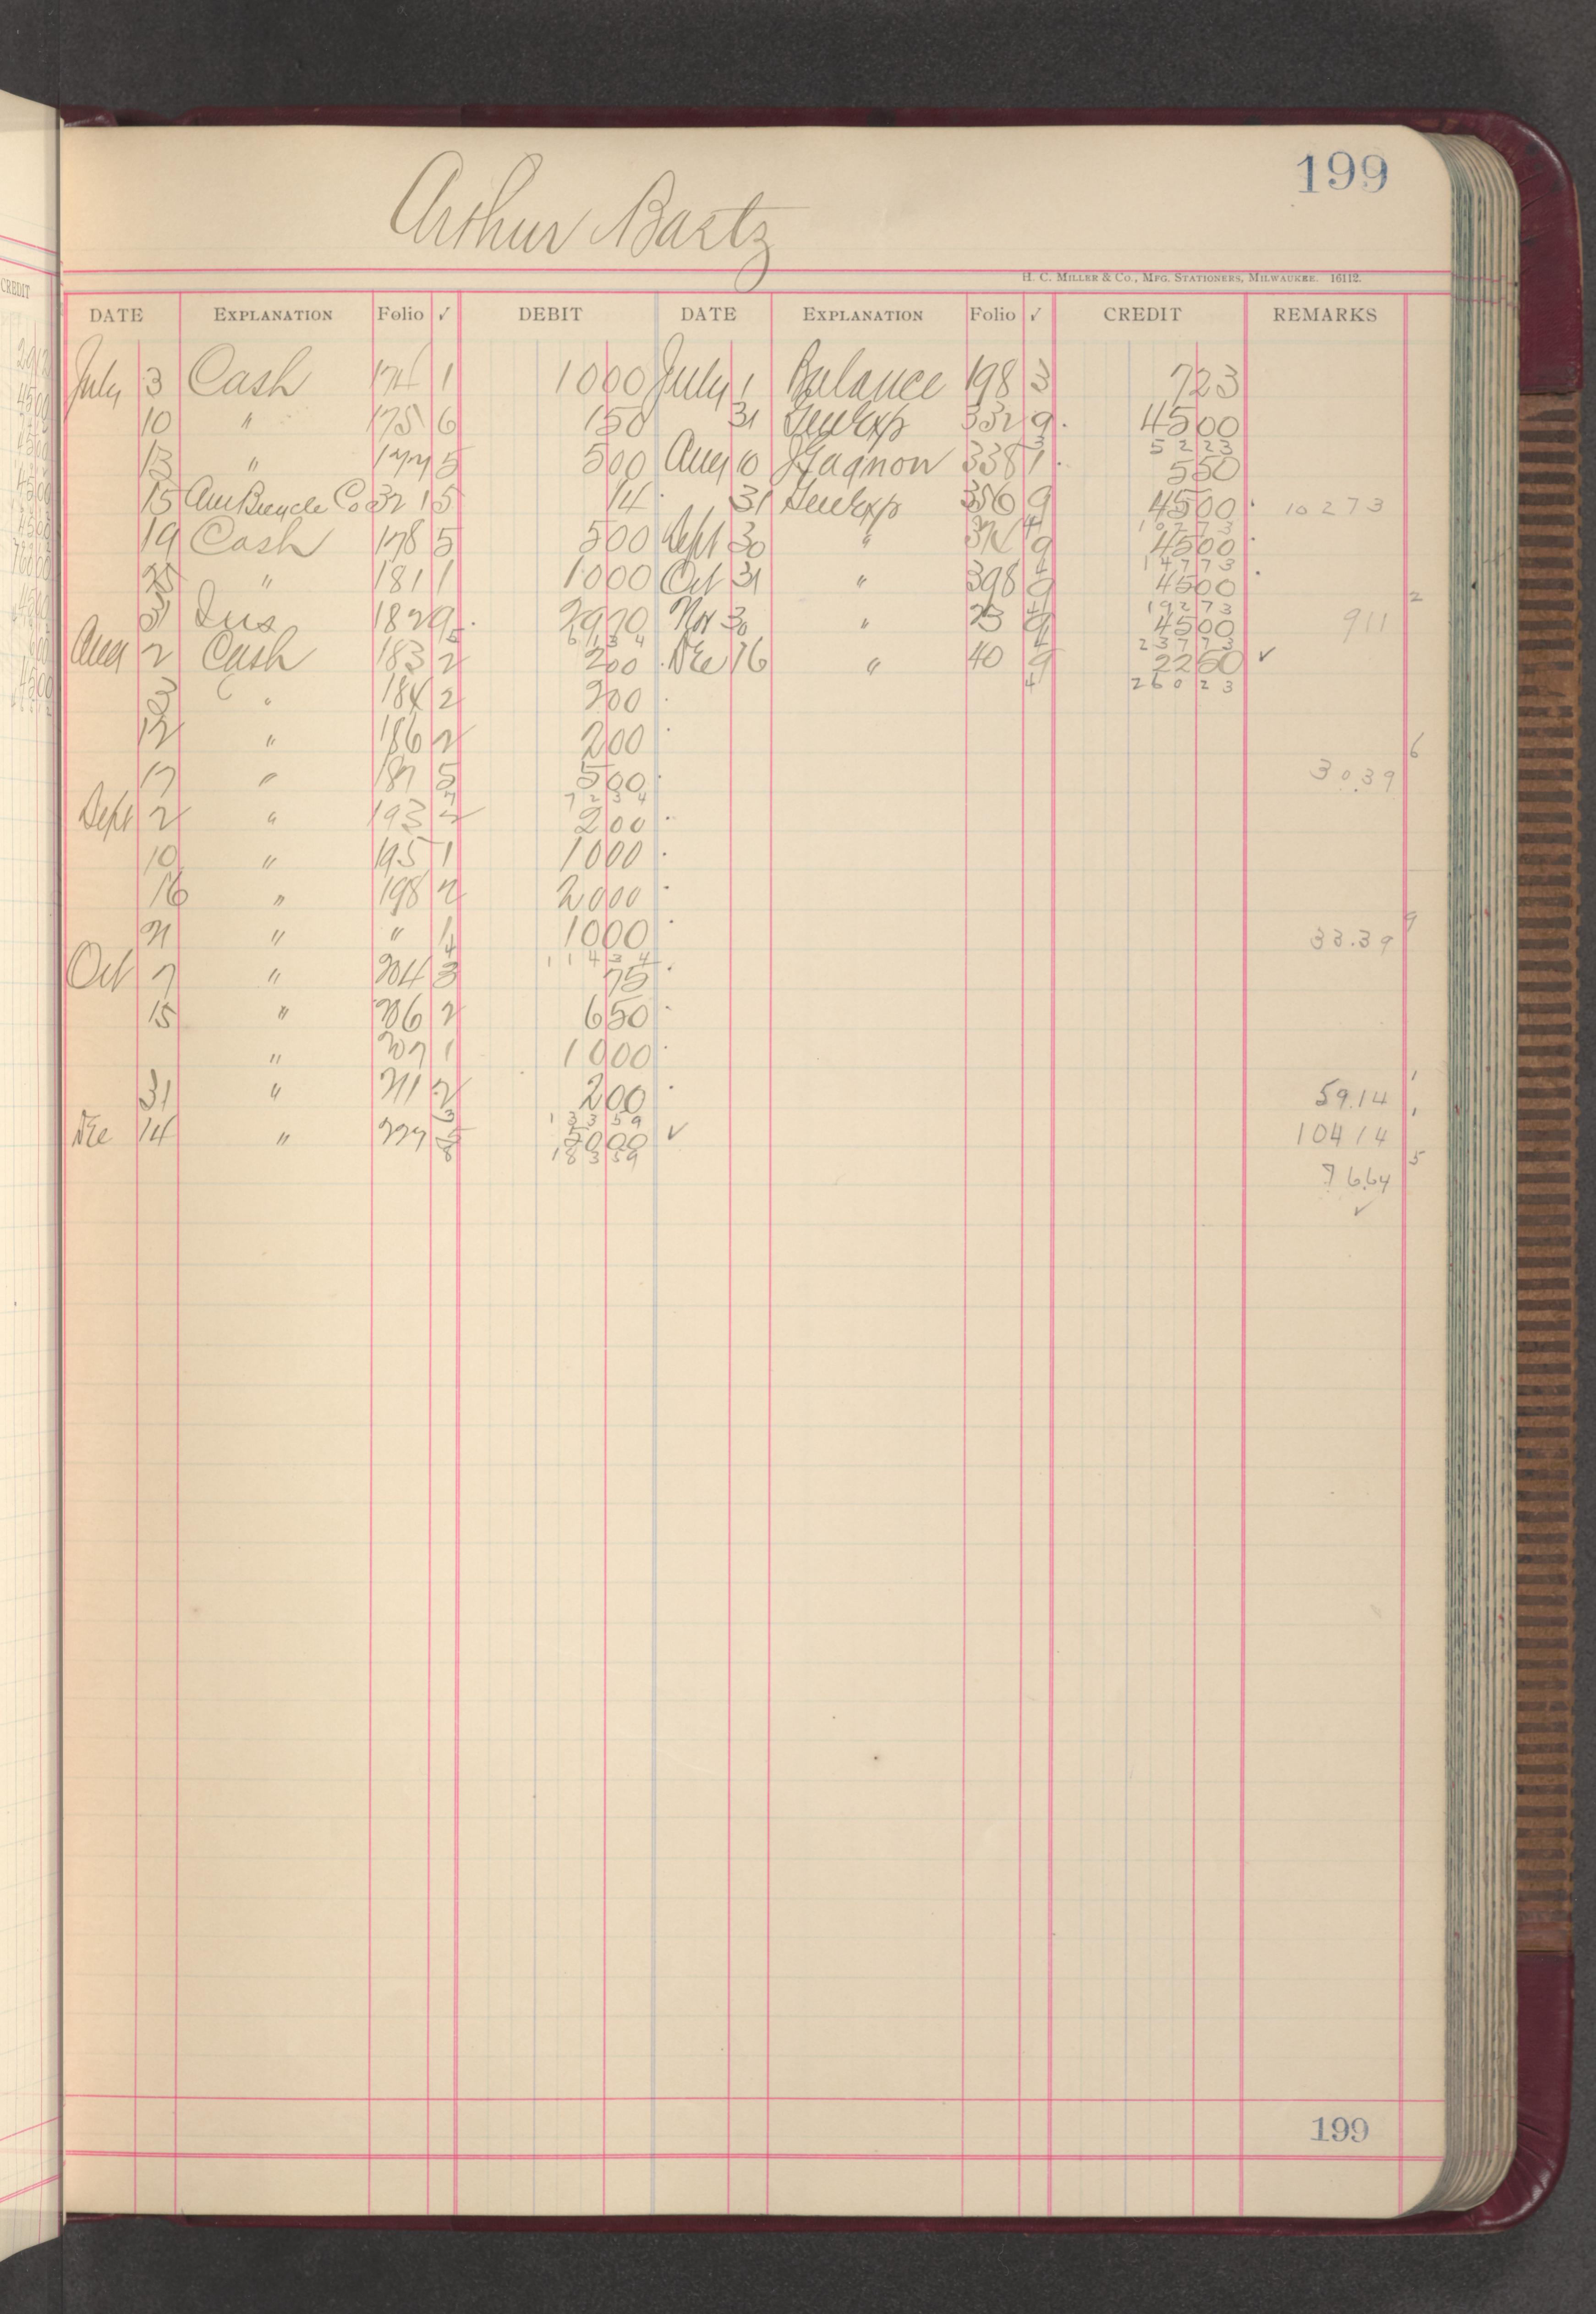 199
Arthur Bartz
H. C. Miller & Co., Mfg. Stationers, Milwaukee. 16112.
CREDIT
DATE Explanation Folio ✓ DEBIT DATE Explanation Folio ✓ CREDIT REMARKS
July 3 Cash 174 1 1000 July 1 Balance 198 3 723
10 " 175 6 150 31 Gen Exp 332 9 4500
5223
13 " 177 5 500 Aug 10 J Gagnon 338 1 550
15 Am Bicycle Co 321 5 14 31 Gen Exp 356 9 4500 10273
10273
19 Cash 178 5 500 Sept 30 " 374 9 4500
14773
25 " 181 1 1000 Oct 31 " 398 9 4500
19273
31 Ins 182 9 2970 Nov 30 " 23 9 4500 911 2
6134 23773
Aug 2 Cash 183 2 200 Dec 16 " 40 9 2250 ✓
26023
" 184 2 200
12 " 186 2 200
17 " 187 5 500 30.39 6
7234
Sept 2 " 193 2 200
10 " 195 1 1000
16 " 198 2 2000
21 " " 1 1000 33.39 9
11434
Oct 7 " 204 3 75
15 " 206 2 650
" 207 1 1000
31 " 211 2 200 59.14 1
13359
Dec 14 " 227 5000 ✓ 10414 1
18359
76.64 5
✓
199